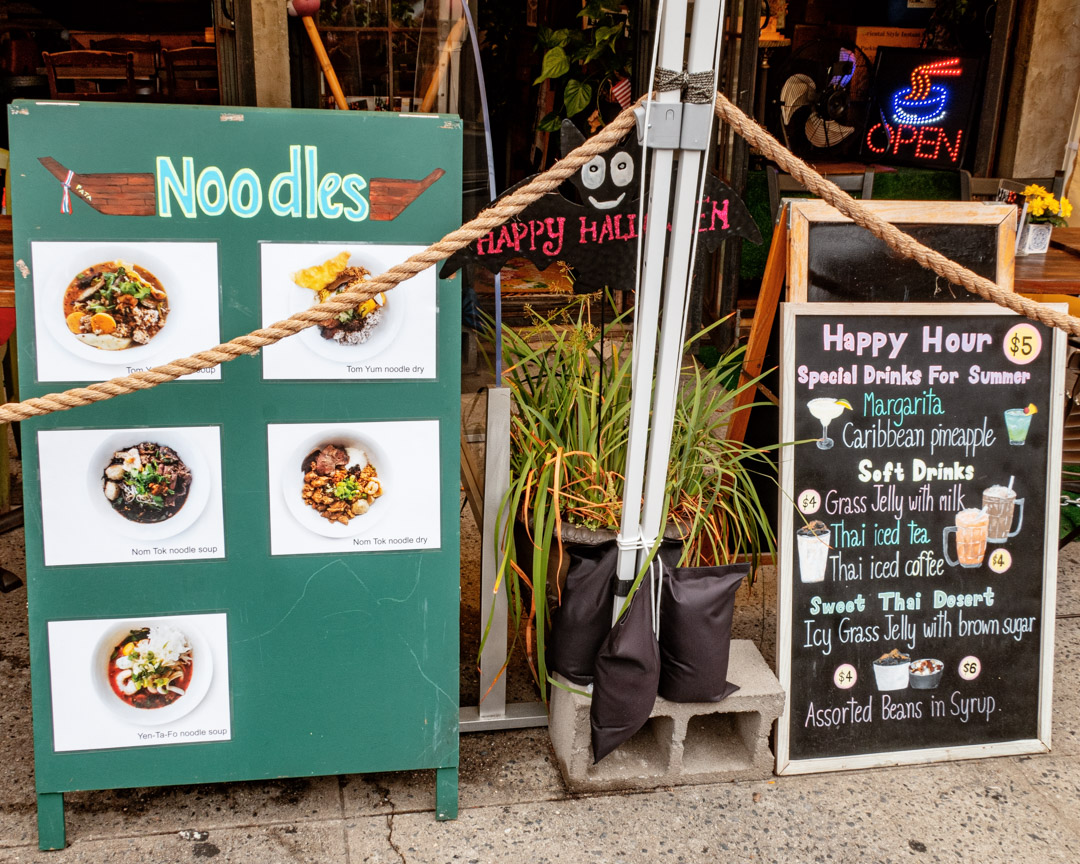 PATA
Noodles
Tom Y soup
Tom Yum noodle dry
Nom Tok noodle soup
Nom Tok noodle dry
Yen-Ta-Fo noodle soup
HAPPY HALL EN
OPEN
Happy Hour $5
Special Drinks For Summer
Margarita
Caribbean pineapple
Soft Drinks
$4 Grass Jelly with milk
Thai iced tea
Thai iced coffee $4
Sweet Thai Desert
Icy Grass Jelly with brown sugar
$4 $6
Assorted Beans in Syrup.